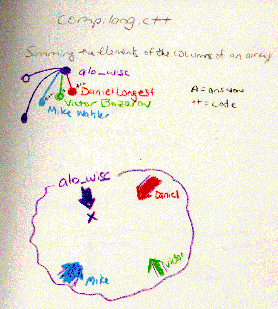 Comp.lang.c++
Summing the elements of the columns of an array
alo_wisc
Daniel Longest
Victor Bazarov
Mike Wahler
A = answer
++ = code
alo_wisc
Daniel
Mike
Victor